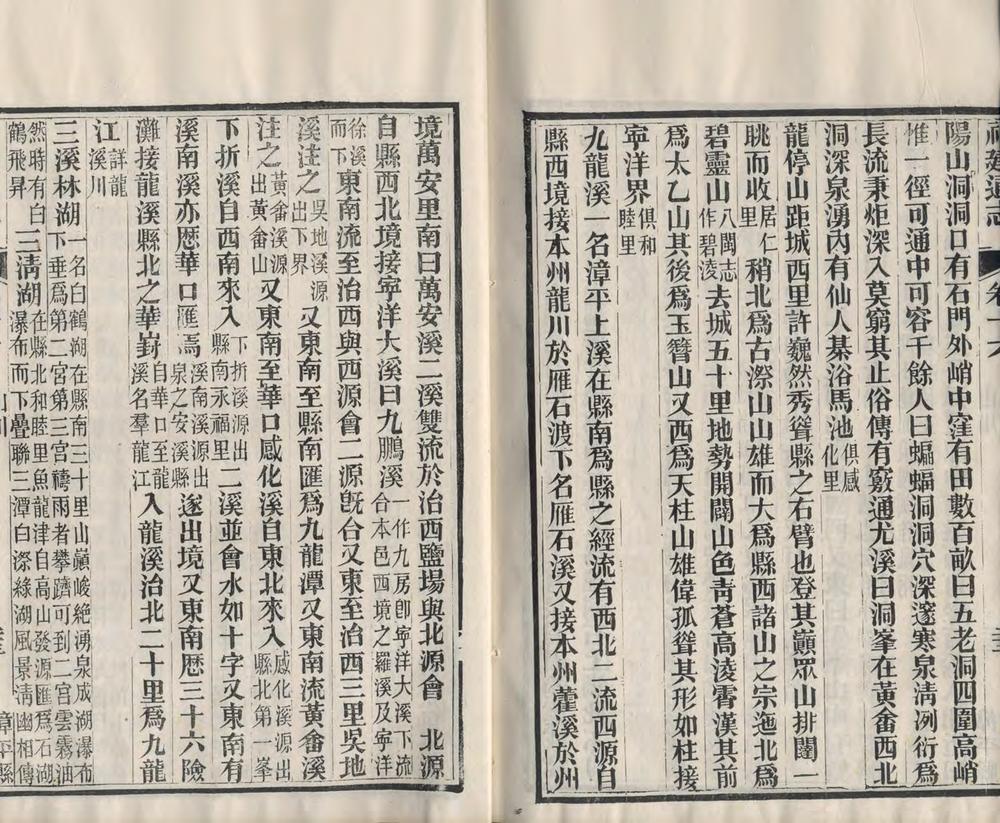 陽山洞洞口有石門外峭中窪有田數百畝曰五老洞四圍高峭
惟一徑可通中可容千餘人曰蝙蝠洞洞穴深邃寒泉清冽衍爲
長流秉炬深入莫窮其止俗傳有竅通尤溪曰洞峯在黃畬西北
洞深泉湧內有仙人棊浴馬池俱感化里
龍停山距城西里許巍然秀聳縣之右臂也登其巔眾山排闥一
眺而收居仁里稍北爲古漈山山雄而大爲縣西諸山之宗迤北爲
碧靈山八閩志作碧淩去城五十里地勢開闢山色靑蒼高淩霄漢其前
爲太乙山其後爲玉簪山又西爲天柱山雄偉孤聳其形如柱接
寜洋界俱和睦里
九龍溪一名漳平上溪在縣南爲縣之經流有西北二流西源自
縣西境接本州龍川於雁石渡下名雁石溪又接本州藿溪於州
境萬安里南曰萬安溪二溪雙流於治西鹽場與北源會 北源
自縣西北境接寜洋大溪曰九鵬溪一作九房卽寜洋大溪下流合本邑西境之羅溪及寜洋
徐溪而下東南流至治西與西源會二源旣合又東至治西三里吳地
溪注之吳地溪源出下界又東南至縣南匯爲九龍潭又東南流黃畬溪
注之黃畬溪源出黃畬山又東南至華口感化溪自東北來入感化溪源出縣北第一峯
下折溪自西南來入下折溪源出縣南永福里二溪並會水如十字又東南有
溪南溪亦歷華口匯焉溪南溪源出泉之安溪縣遂出境又東南歷三十六險
灘接龍溪縣北之華葑自華口至龍溪名羣龍江入龍溪治北二十里爲九龍
江詳龍溪川
三溪林湖一名白鶴湖在縣南三十里山巔峻絕湧泉成湖瀑布下垂爲第二宮第三宮禱雨者攀躋可到二宮雲霧油
然時有白鶴飛昇三淸湖在縣北和睦里魚龍津自高山發源匯爲石湖瀑布而下疊聯三潭白漈綠湖風景淸幽相傳